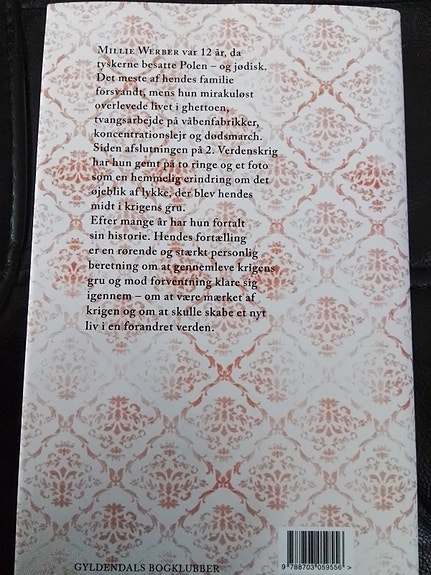 MILLIE WERBER var 12 år, da
tyskerne besatte Polen – og jødisk.
Det meste af hendes familie
forsvandt, mens hun mirakuløst
overlevede livet i ghettoen,
tvangsarbejde på våbenfabrikker,
koncentrationslejr og dødsmarch.
Siden afslutningen på 2. Verdenskrig
har hun gemt på to ringe og et foto
som en hemmelig erindring om det
øjeblik af lykke, der blev hendes
midt i krigens gru.
Efter mange år har hun fortalt
sin historie. Hendes fortælling
er en rørende og stærkt personlig
beretning om at gennemleve krigens
gru og mod forventning klare sig
igennem – om at være mærket af
krigen og om at skulle skabe et nyt
liv i en forandret verden.
GYLDENDALS BOGKLUBBER
9 788703 059556 >